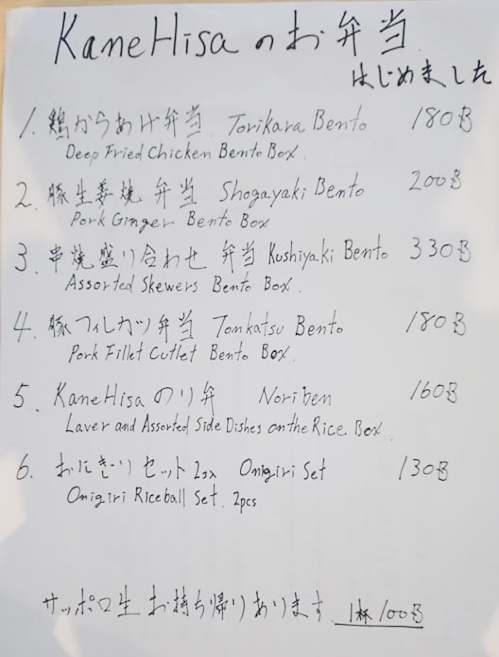 KaneHisaのお弁当
はじめました
1. 鶏からあげ弁当 Torikara Bento 180B
Deep Fried Chicken Bento Box.
2. 豚生姜焼 弁当 Shogayaki Bento 200B
Pork Ginger Bento Box
3. 串焼盛り合わせ 弁当 Kushiyaki Bento 330B
Assorted Skewers Bento Box.
4. 豚フィレカツ弁当 Tonkatsu Bento 180B
Pork Fillet Cutlet Bento Box.
5. KaneHisa のり弁 Noriben 160B
Laver and Assorted Side Dishes on the Rice Box.
6. おにぎりセット 2コ入 Onigiri Set 130B
Onigiri Riceball Set. 2pcs
サッポロ生 お持ち帰りあります. 1杯 100B